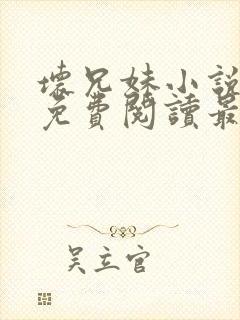 壞兄妹小說
免費閱讀最
吳立官